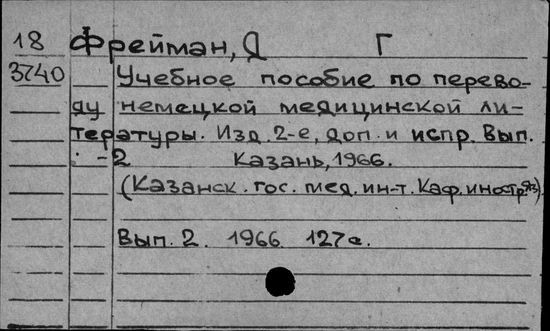 18 Фрейман, Д Г
3740 Учебное пособие по перево-
ду немецкой медицинской ли-
тературы. Изд. 2-е, доп. и испр. Вып.
-2 Казань, 1966.
(Казанск. гос. мед. ин-т. Каф. иностр. яз)
Вып. 2. 1966 127с.